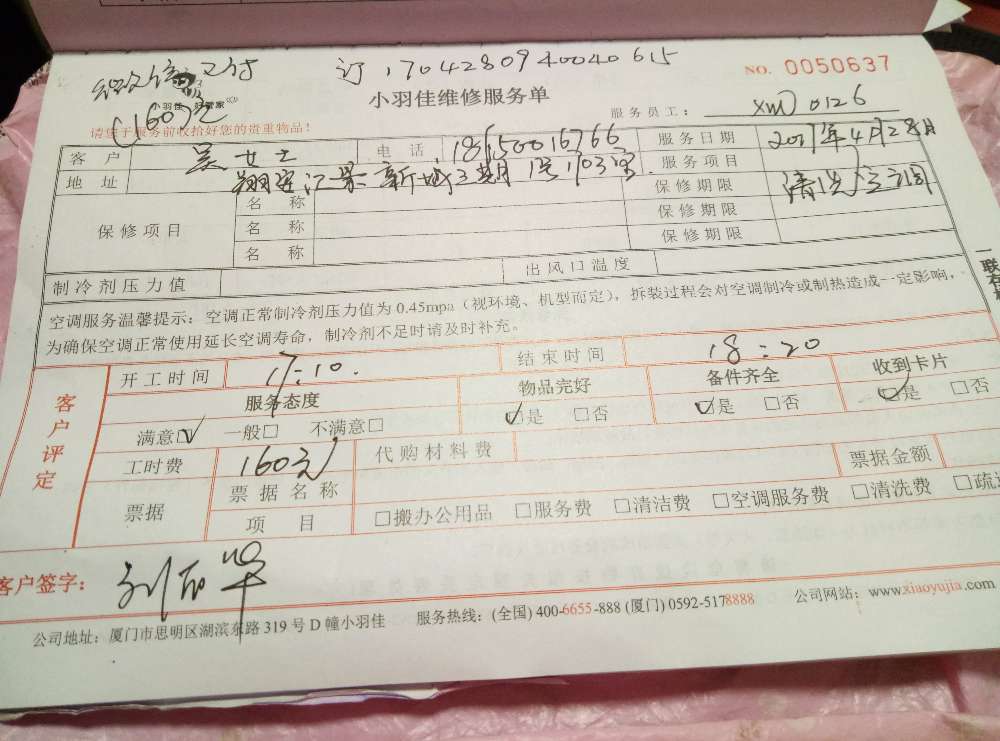 微信支付 订 1704280940040615 NO. 0050637
小羽佳 好管家
(160)元 小羽佳维修服务单 服务员工: XM 0126
请您于服务前收拾好您的贵重物品!
客户 吴女士 电话 18150016766 服务日期 2017年4月28日
地址 翔安汇景新城3期 1号1703室 服务项目 清洗空调
保修项目 名称 保修期限
名称 保修期限
名称 保修期限
制冷剂压力值 出风口温度
空调服务温馨提示:空调正常制冷剂压力值为 0.45mpa(视环境、机型而定),拆装过程会对空调制冷或制热造成一定影响,
为确保空调正常使用延长空调寿命,制冷剂不足时请及时补充。
客户评定 开工时间 17:10. 结束时间 18:20
服务态度 物品完好 备件齐全 收到卡片
满意☑ 一般□ 不满意□ ☑是 □否 ☑是 □否 ☑是 □否
工时费 160元 代购材料费 票据金额
票据 票据名称
项目 □搬办公用品 □服务费 □清洁费 □空调服务费 □清洗费 □疏
客户签字:
公司地址:厦门市思明区湖滨东路 319 号 D 幢小羽佳 服务热线:(全国) 400-6655-888 (厦门) 0592-5178888 公司网站:www.xiaoyujia.com
一联存